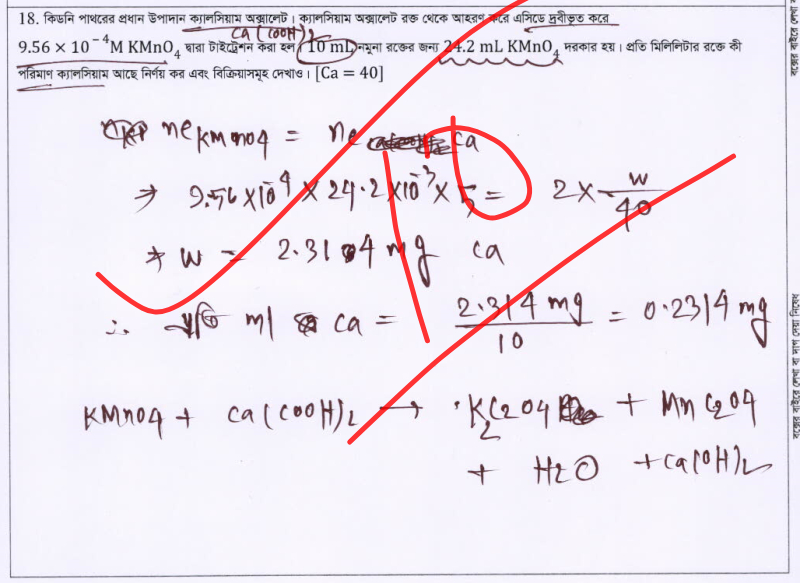 18. কিডনি পাথরের প্রধান উপাদান ক্যালসিয়াম অক্সালেট। ক্যালসিয়াম অক্সালেট রক্ত থেকে আহরণ করে এসিডে দ্রবীভূত করে
ca(COOH)2
9.56 × 10⁻⁴M KMnO₄ দ্বারা টাইট্রেশন করা হল। 10 mL নমুনা রক্তের জন্য 24.2 mL KMnO₄ দরকার হয়। প্রতি মিলিলিটার রক্তে কী
পরিমাণ ক্যালসিয়াম আছে নির্ণয় কর এবং বিক্রিয়াসমূহ দেখাও। [Ca = 40]
ne KMnO4 = ne ca
⇒ 9.56 × 10⁻⁴ × 24.2 × 10⁻³ × 5 = 2 × w/40
⇒ w = 2.314 mg ca
∴ প্রতি ml ca = 2.314 mg/10 = 0.2314 mg
KMnO4 + ca(COOH)2 → K2C2O4 + MnC2O4
+ H2O + ca(OH)2
বক্সের বাইরে লেখা বা দাগ দেয়া নিষেধ
বক্সের বাইরে লেখা ব